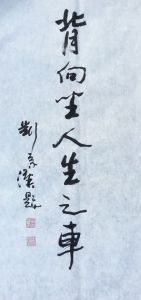 背向坐人生之車
劉
題